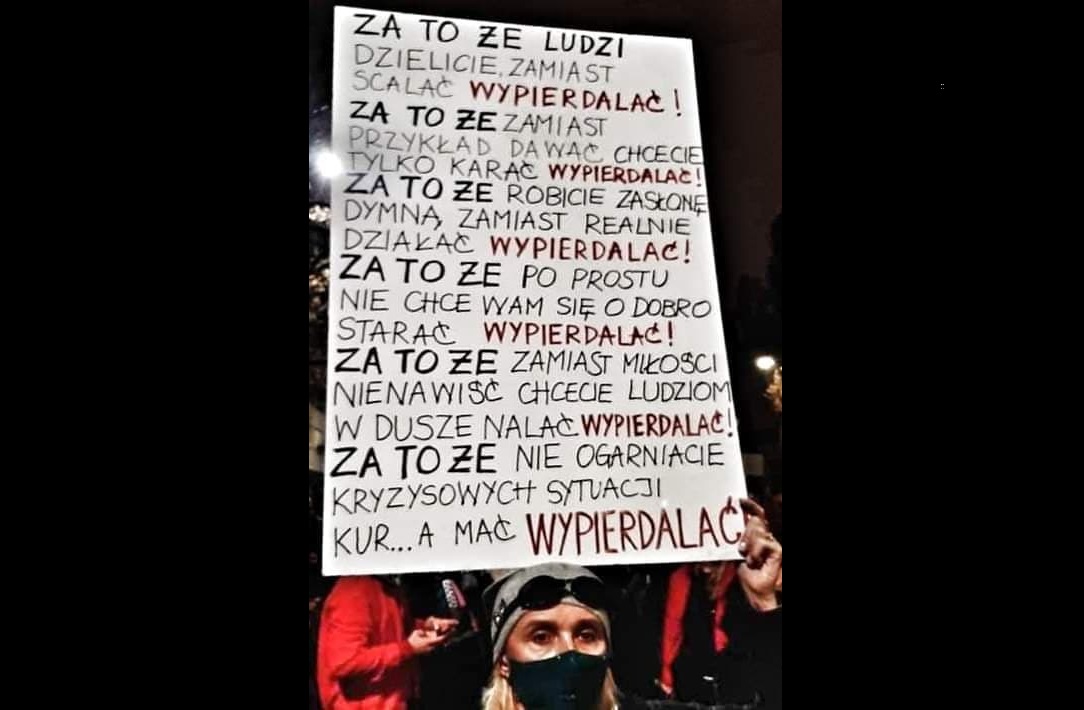 ZA TO ŻE LUDZI
DZIELICIE, ZAMIAST
SCALAĆ WYPIERDALAĆ!
ZA TO ŻE ZAMIAST
PRZYKŁAD DAWAĆ CHCECIE
TYLKO KARAĆ WYPIERDALAĆ!
ZA TO ŻE ROBICIE ZASŁONĘ
DYMNĄ, ZAMIAST REALNIE
DZIAŁAĆ WYPIERDALAĆ!
ZA TO ŻE PO PROSTU
NIE CHCE WAM SIĘ O DOBRO
STARAĆ WYPIERDALAĆ!
ZA TO ŻE ZAMIAST MIŁOŚCI
NIENAWIŚĆ CHCECIE LUDZIOM
W DUSZE NALAĆ WYPIERDALAĆ!
ZA TO ŻE NIE OGARNIACIE
KRYZYSOWYCH SYTUACJI
KUR...A MAĆ WYPIERDALAĆ